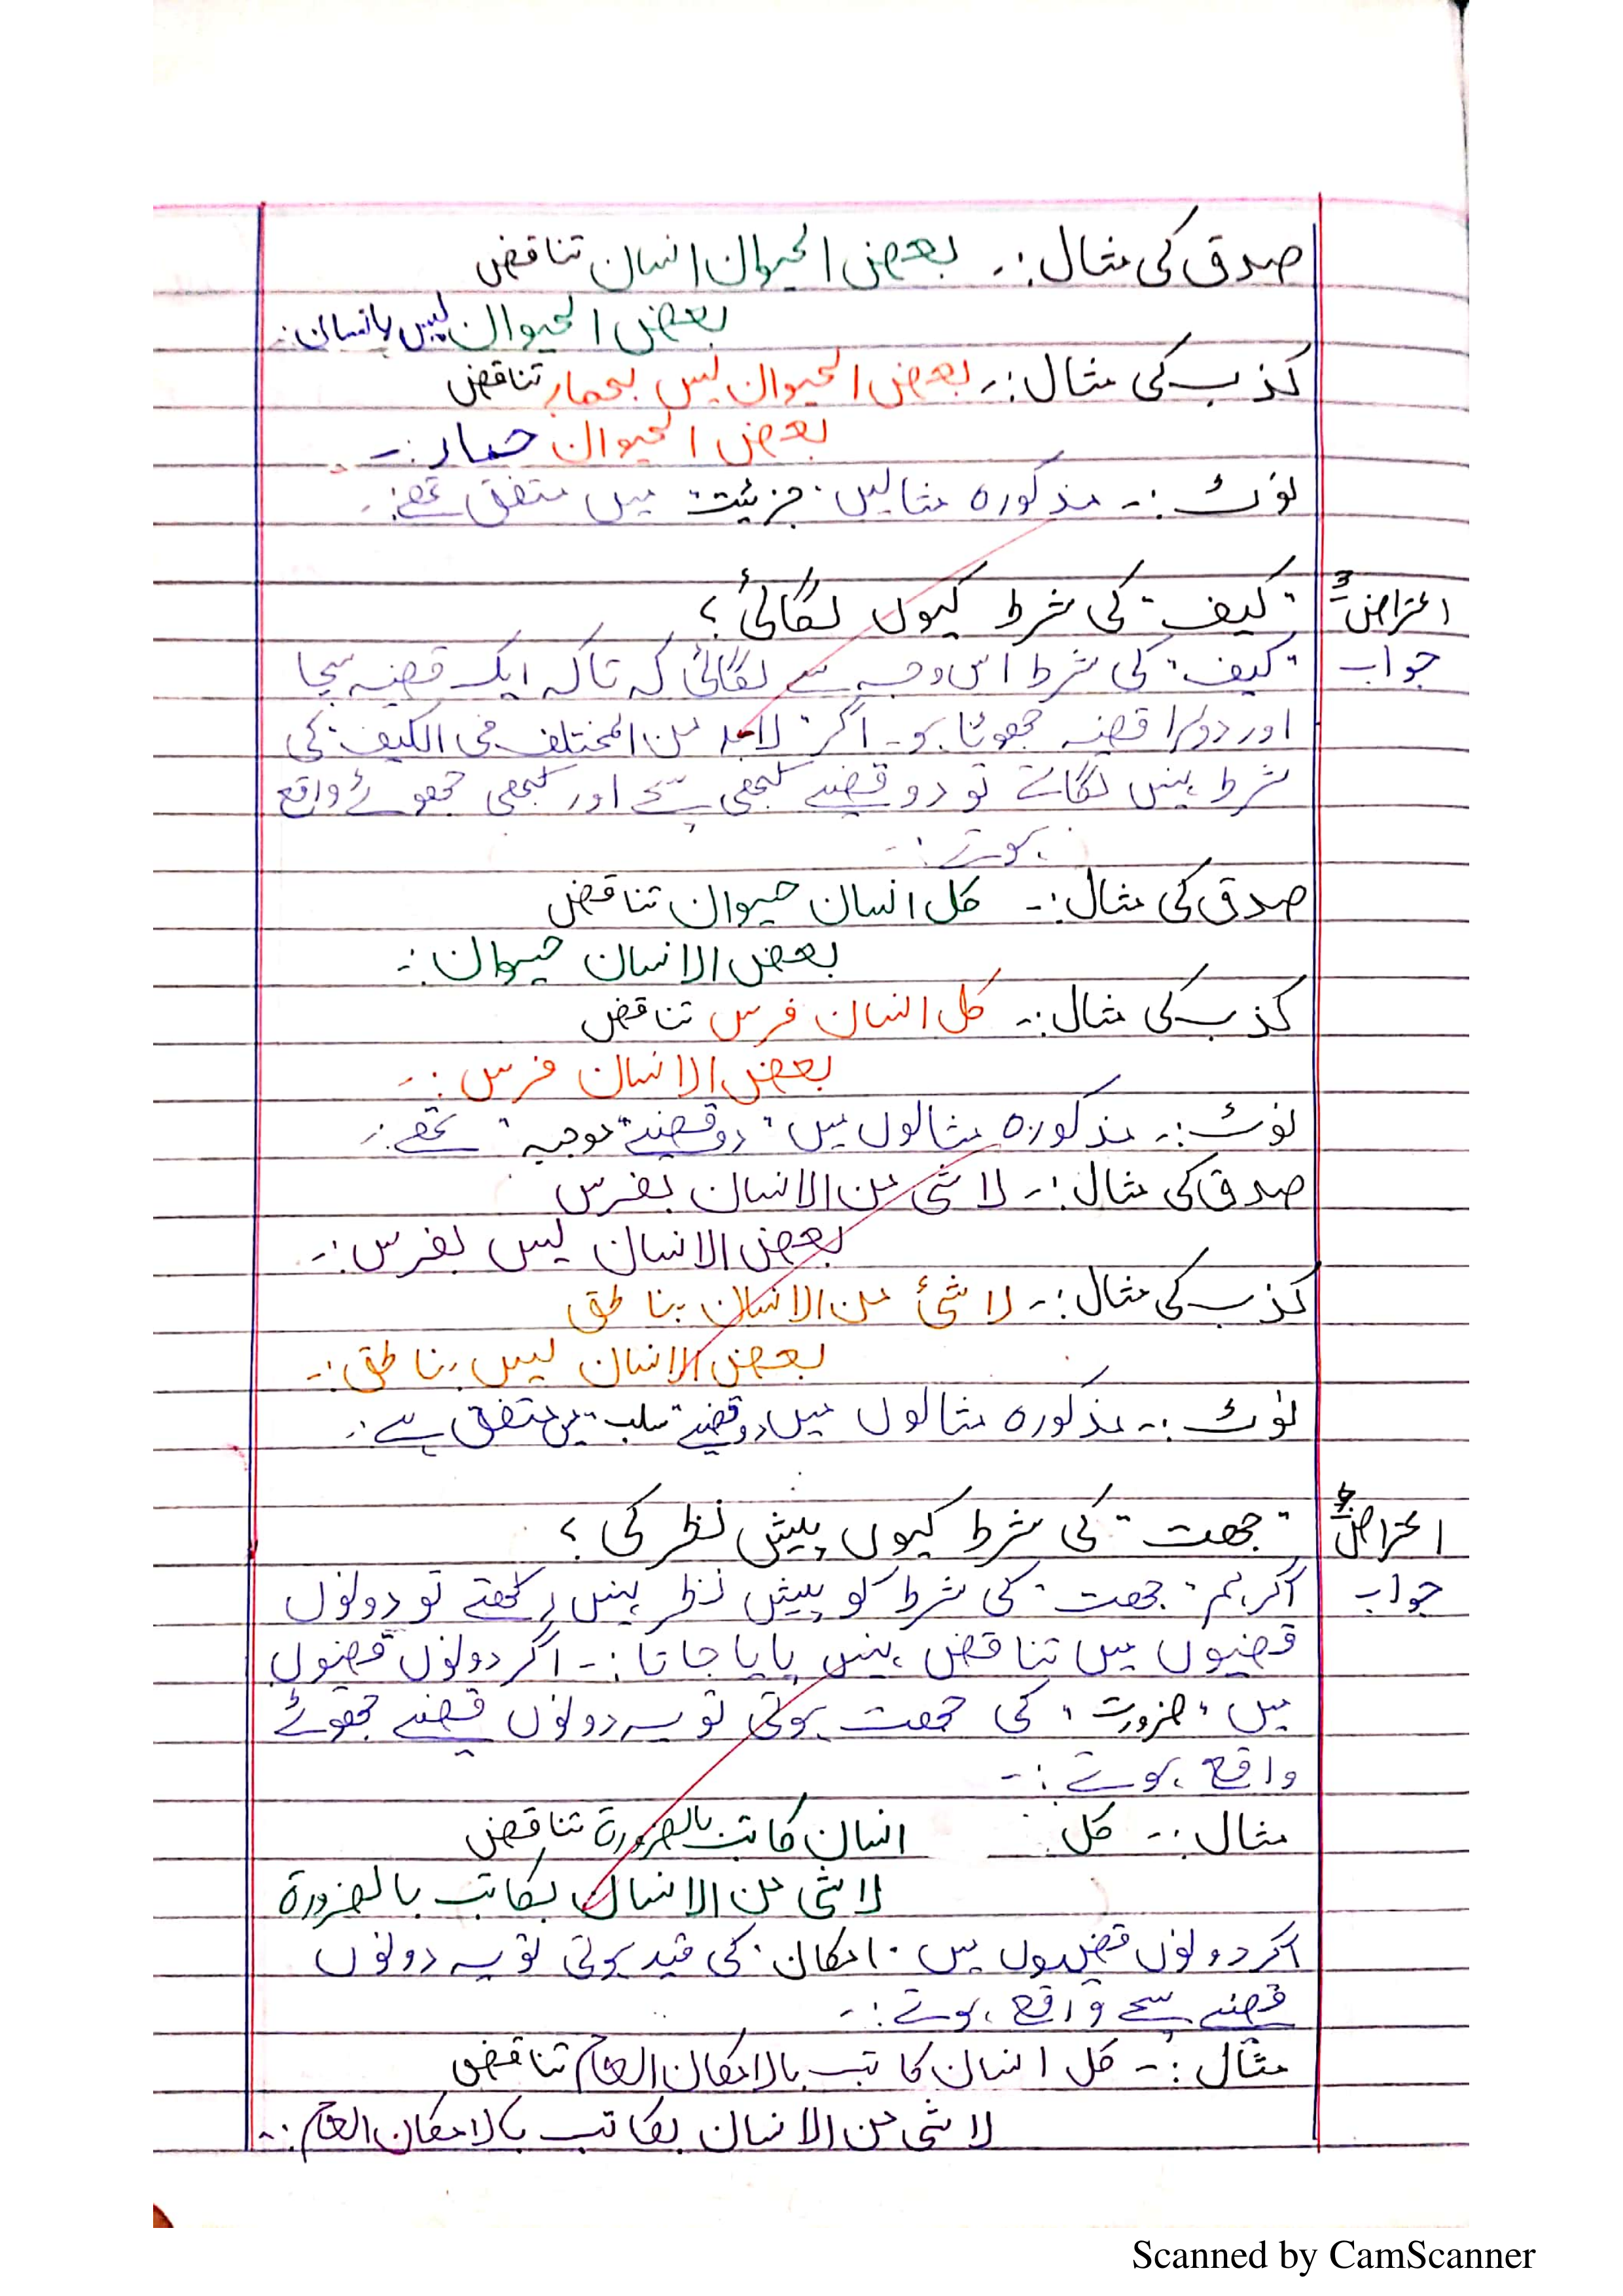 صدق کی مثال:۔ بعض الحیوان انسان تناقض
بعض الحیوان لیس بانسان:۔
کذب کی مثال:۔ بعض الحیوان لیس بحمار تناقض
بعض الحیوان حمار:۔
نوٹ:۔ مذکورہ مثالیں "جزئیت" میں متفق تھے:۔
اعتراض 3 "کیف" کی شرط کیوں لگائی؟
جواب "کیف" کی شرط اس وجہ سے لگائی کہ تاکہ ایک قضیہ سچا
اور دوسرا قضیہ جھوٹا ہو۔ اگر "لابد من المختلف فی الکیف" کی
شرط نہیں لگاتے تو دو قضیے کبھی سچے اور کبھی جھوٹے واقع
ہوتے:۔
صدق کی مثال:۔ کل انسان حیوان تناقض
بعض الانسان حیوان:۔
کذب کی مثال:۔ کل انسان فرس تناقض
بعض الانسان فرس:۔
نوٹ:۔ مذکورہ مثالوں میں "دو قضیے" موجبہ" تھے:۔
صدق کی مثال:۔ لا شی من الانسان بفرس
بعض الانسان لیس بفرس:۔
کذب کی مثال:۔ لا شئ من الانسان بناطق
بعض الانسان لیس بناطق:۔
نوٹ:۔ مذکورہ مثالوں میں دو قضیے "سلب" میں متفق ہے:۔
اعتراض 4 "جھت" کی شرط کیوں پیش نظر کی؟
جواب اگر ہم "جھت" کی شرط کو پیش نظر نہیں رکھتے تو دونوں
قضیوں میں تناقض نہیں پایا جاتا:۔ اگر دونوں قضیوں
میں "ضرورت" کی جھت ہوتی تو یہ دونوں قضیے جھوٹے
واقع ہوتے:۔
مثال:۔ کل انسان کاتب بالضرورة تناقض
لا شی من الانسان بکاتب بالضرورة
اگر دونوں قضیوں میں "امکان" کی قید ہوتی تو یہ دونوں
قضیے سچے واقع ہوتے:۔
مثال:۔ کل انسان کاتب بالامکان العام تناقض
لا شی من الانسان بکاتب بالامکان العام:۔
Scanned by CamScanner